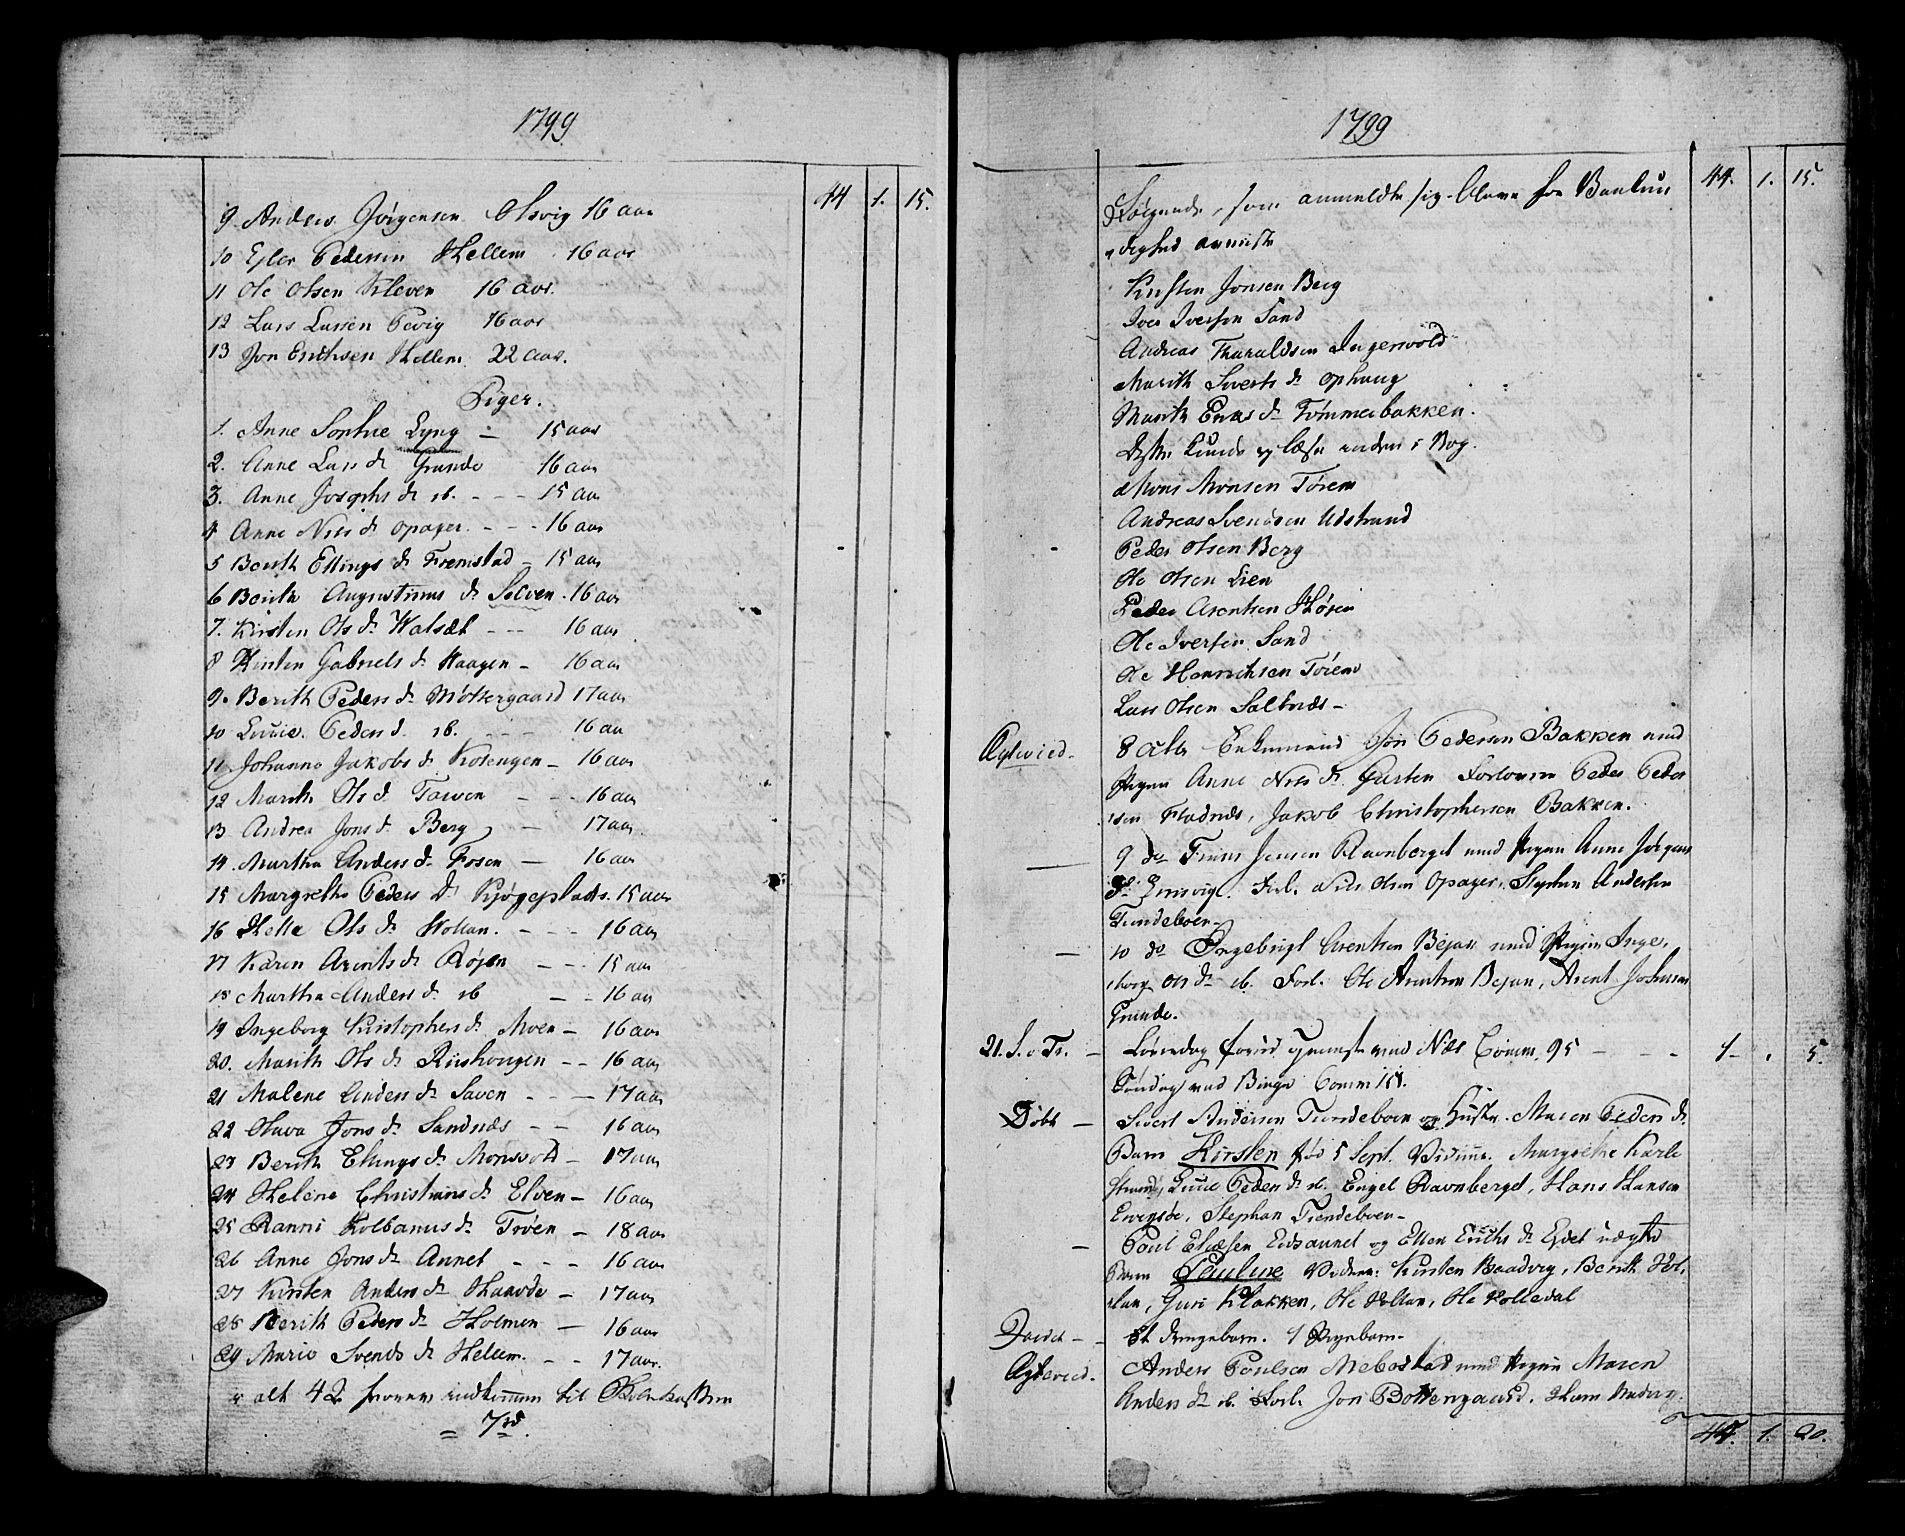 1799
44 1. 15.
9 Anders Jørgensen Olsvig 16 aar
10 Ejler Pedersen Hellem 16 aar
11 Ole Olsen Kleven 16 aar.
12 Lars Larsen Pevig 16 aar
13 Jon Erichsen Hellem. 22 aar.
Piger.
1. Anne Sophie Lyng - 15 aar
2. Anne Lars d. Grande 16 aar
3. Anne Josephs d. ib. - - - 15 aar
4 Anne Nils d. Opager. - - - 16 aar
5 Berith Ellings d. Fremstad - 15 aar
6 Berith Augustinus d. Selven. 16 aar
7. Kirsten Ols d. Walsæt - - - 16 aar
8 Kirsten Gabriels d. Haagen - 16 aar
9. Berith Peders d. Møllergaard 17 aar
10 Peders d. ib. - - - 16 aar
11 Johanna Jakobs d. Kotengen - 16 aar
12 Marith Ols d. Tarven - - - 16 aar
13 Andrea Jons d. Berg - 17 aar.
14. Martha Anders d. Fosen - 16 aar
15 Margrethe Peders d. Kjøgeplads. 15 aar
16 Ols d. Hollan. - - - 16 aar
17 Karen Arents d. Røjen - - - 15 aar
18 Martha Anders d. ib - - 16 aar
19 Ingeborg Kristophers d. Moen - 16 aar
20. Marith Ols d. Riishougen - - 16 aar
21 Malene Anders d. Saven - - - 17 aar
22 Olava Jons d. Sandnæs - - 16 aar
23 Berith Ellings d. Monsvold - 17 aar
24 Helene Christians d. Elven - 16 aar
25 Ranni Kolbanus d. Tøven - 18 aar
26 Anne Jons d. Annet - - - 16 aar
27 Kirsten Anders d. Haarde - 17 aar
28 Berith Peders d. Holmen - 16 aar
29 Marie Svends d. Hellem. - - 17 aar.
alt 42 indkommen til
1799
44. 1. 15.
Følgende, som anmeldte sig bleve for Vankun
dighed avviiste
Kirsten Jonsen Berg
Iver Iversen Sand
Andreas Tharaldsen Ingervold
Marith Siverts d. Ophaug
Marith Eriks d. Tømmerbakken.
Disse kunde ej læse uden i Bog.
Mons Monsen Tørem
Andreas Svendsen Udstrand
Peder Olsen Berg
Ole Olsen Lien
Peder Arentsen
Ole Iversen Sand
Ole Henrichsen Tørem
Lars Olsen Saltnæs -
Ægtevied. 8 Octb Enkemand Jon Pedersen Bakken med
Pigen Anne Nils d. Garten Forlovere Peder Peder
sen Fladnæs, Jakob Christophersen Bakken.
- 9 do. Jensen Ravnberget med Pigen Anne Jørgens
d. Forl. Nils Olsen Opager, Stephen Andersen
Tiendeboen -
- 10 do Ingebrigt Arentsen Bejan med Pigen Inge,
borg Ols d. ib. Forl. Ole Arentsen Bejan, Arent Johnsen
Grande.
21. S. e. Tr. - Løverdag forud Tjeneste ved Næs Comm. 95 - - - - 1 - . 5.
Søndag ved Bingn Comm 151.
Døbt - Sivert Andersen Tiendeboen og Hustr. Maren Peders d.
Barn Kirsten fød 5 Sept. Margrethe Karle
strand, Peders d. ib. Engel Ravnberget, Hans Hansen
Stephan Tiendeboen -
- Poul Elæsen Eidsaunet og Ellen Erichs d. Eidet uægte
Barn Pauline Kirsten Baadvig, Berith Hol,
lan, Guri Klakken, Ole Hollan, Ole Holledal
- Et drengebarn. 1 Pigebarn -
Ægtevied. Anders Poulsen Mebostad med Pigen Maren
Anders d. ib. Forl. Jon Bottengaard,
1. 20.